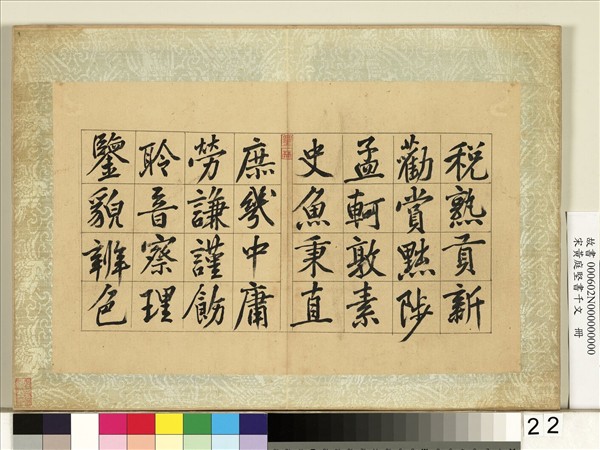 稅熟貢新
勸賞黜陟
孟軻敦素
史魚秉直
庶幾中庸
勞謙謹飭
聆音察理
鑒貌辨色
故書000602N000000000
宋黃庭堅書千文 冊
22